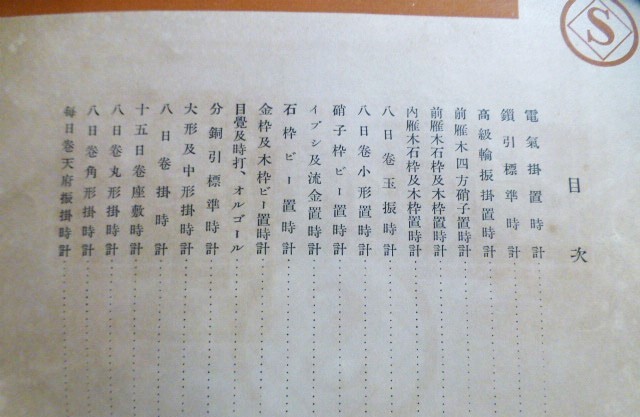 S
目次
電氣掛置時計
鎖引標準時計
高級輪振掛置時計
前雁木四方硝子置時計
前雁木石枠及木枠置時計
內雁木石枠及木枠置時計
八日卷玉振時計
八日卷小形置時計
硝子枠ビー置時計
イブシ及流金置時計
石枠ビー置時計
金枠及木枠ビー置時計
目覺及時打、オルゴール
分銅引標準時計
大形及中形掛時計
八日卷掛時計
十五日卷座敷時計
八日卷丸形掛時計
八日卷角形掛時計
每日卷天府振掛時計